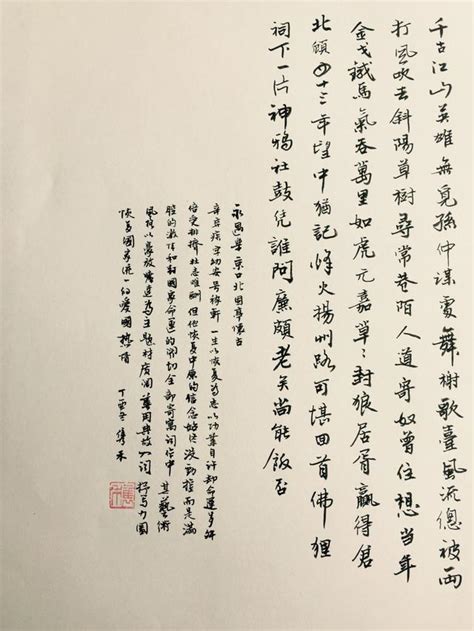 千古江山英雄無覓孫仲謀處舞榭歌臺風流總被雨
打風吹去斜陽草樹尋常巷陌人道寄奴曾住想當年
金戈鐵馬氣吞萬里如虎元嘉草〻封狼居胥贏得倉
北顧四十三年望中猶記烽火揚州路可堪回首佛狸
祠下一片神鴉社鼓凭誰問廉頗老矣尚能飯否
永遇樂京口北固亭懷古
辛弃疾字幼安号稼軒一生以恢复為志以功業自許却命運多舛
倍受排擠壯志難酬但他恢复中原的信念始終沒動搖而是滿
腔的激情和對國家命運的關切全部寄寓詞作中其藝術
風格以豪放為主題材广闊善用典故一詞抒写力圖
恢复國家統一的愛國熱情 丁酉